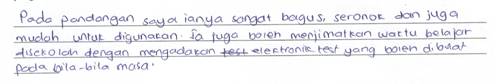 Pada pandangan saya ianya sangat bagus, seronok dan juga
mudah untuk digunakan. Ia juga boleh menjimatkan waktu belajar
disekolah dengan mengadakan test electronik test yang boleh dibuat
pada bila-bila masa.